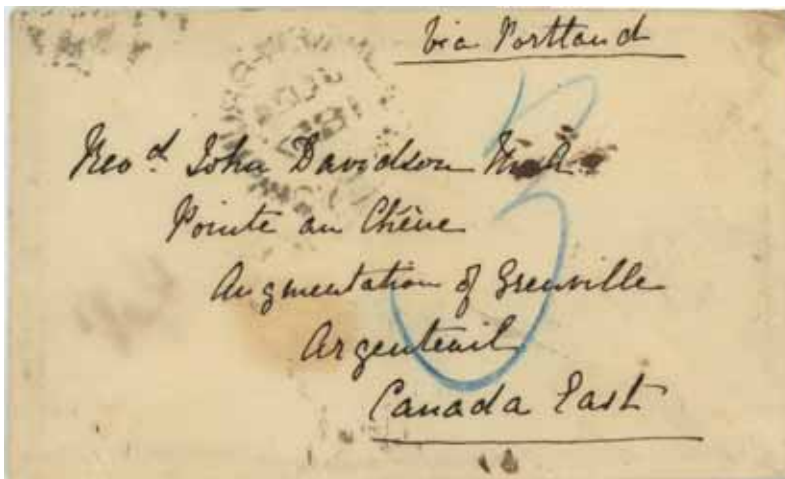 via Portland
3
Revd. John Davidson M.A.
Pointe au Chêne
Augmentation of Grenville
Argenteuil
Canada East